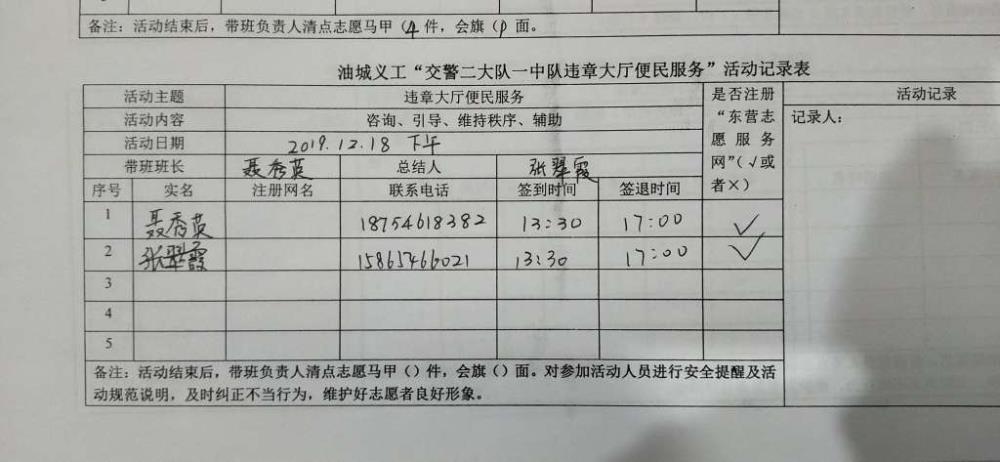 备注：活动结束后，带班负责人清点志愿马甲（4件，会旗（）面。
油城义工“交警二大队一中队违章大厅便民服务”活动记录表
活动主题 违章大厅便民服务 是否注册“东营志愿服务网”（√或者×） 活动记录
活动内容 咨询、引导、维持秩序、辅助 记录人：
活动日期 2019.12.18 下午
带班班长 聂秀英 总结人 张翠霞
序号 实名 注册网名 联系电话 签到时间 签退时间
1 聂秀英 18754618382 13:30 17:00 √
2 张翠霞 15865466021 13:30 17:00 √
3
4
5
备注：活动结束后，带班负责人清点志愿马甲（）件，会旗（）面。对参加活动人员进行安全提醒及活
动规范说明，及时纠正不当行为，维护好志愿者良好形象。